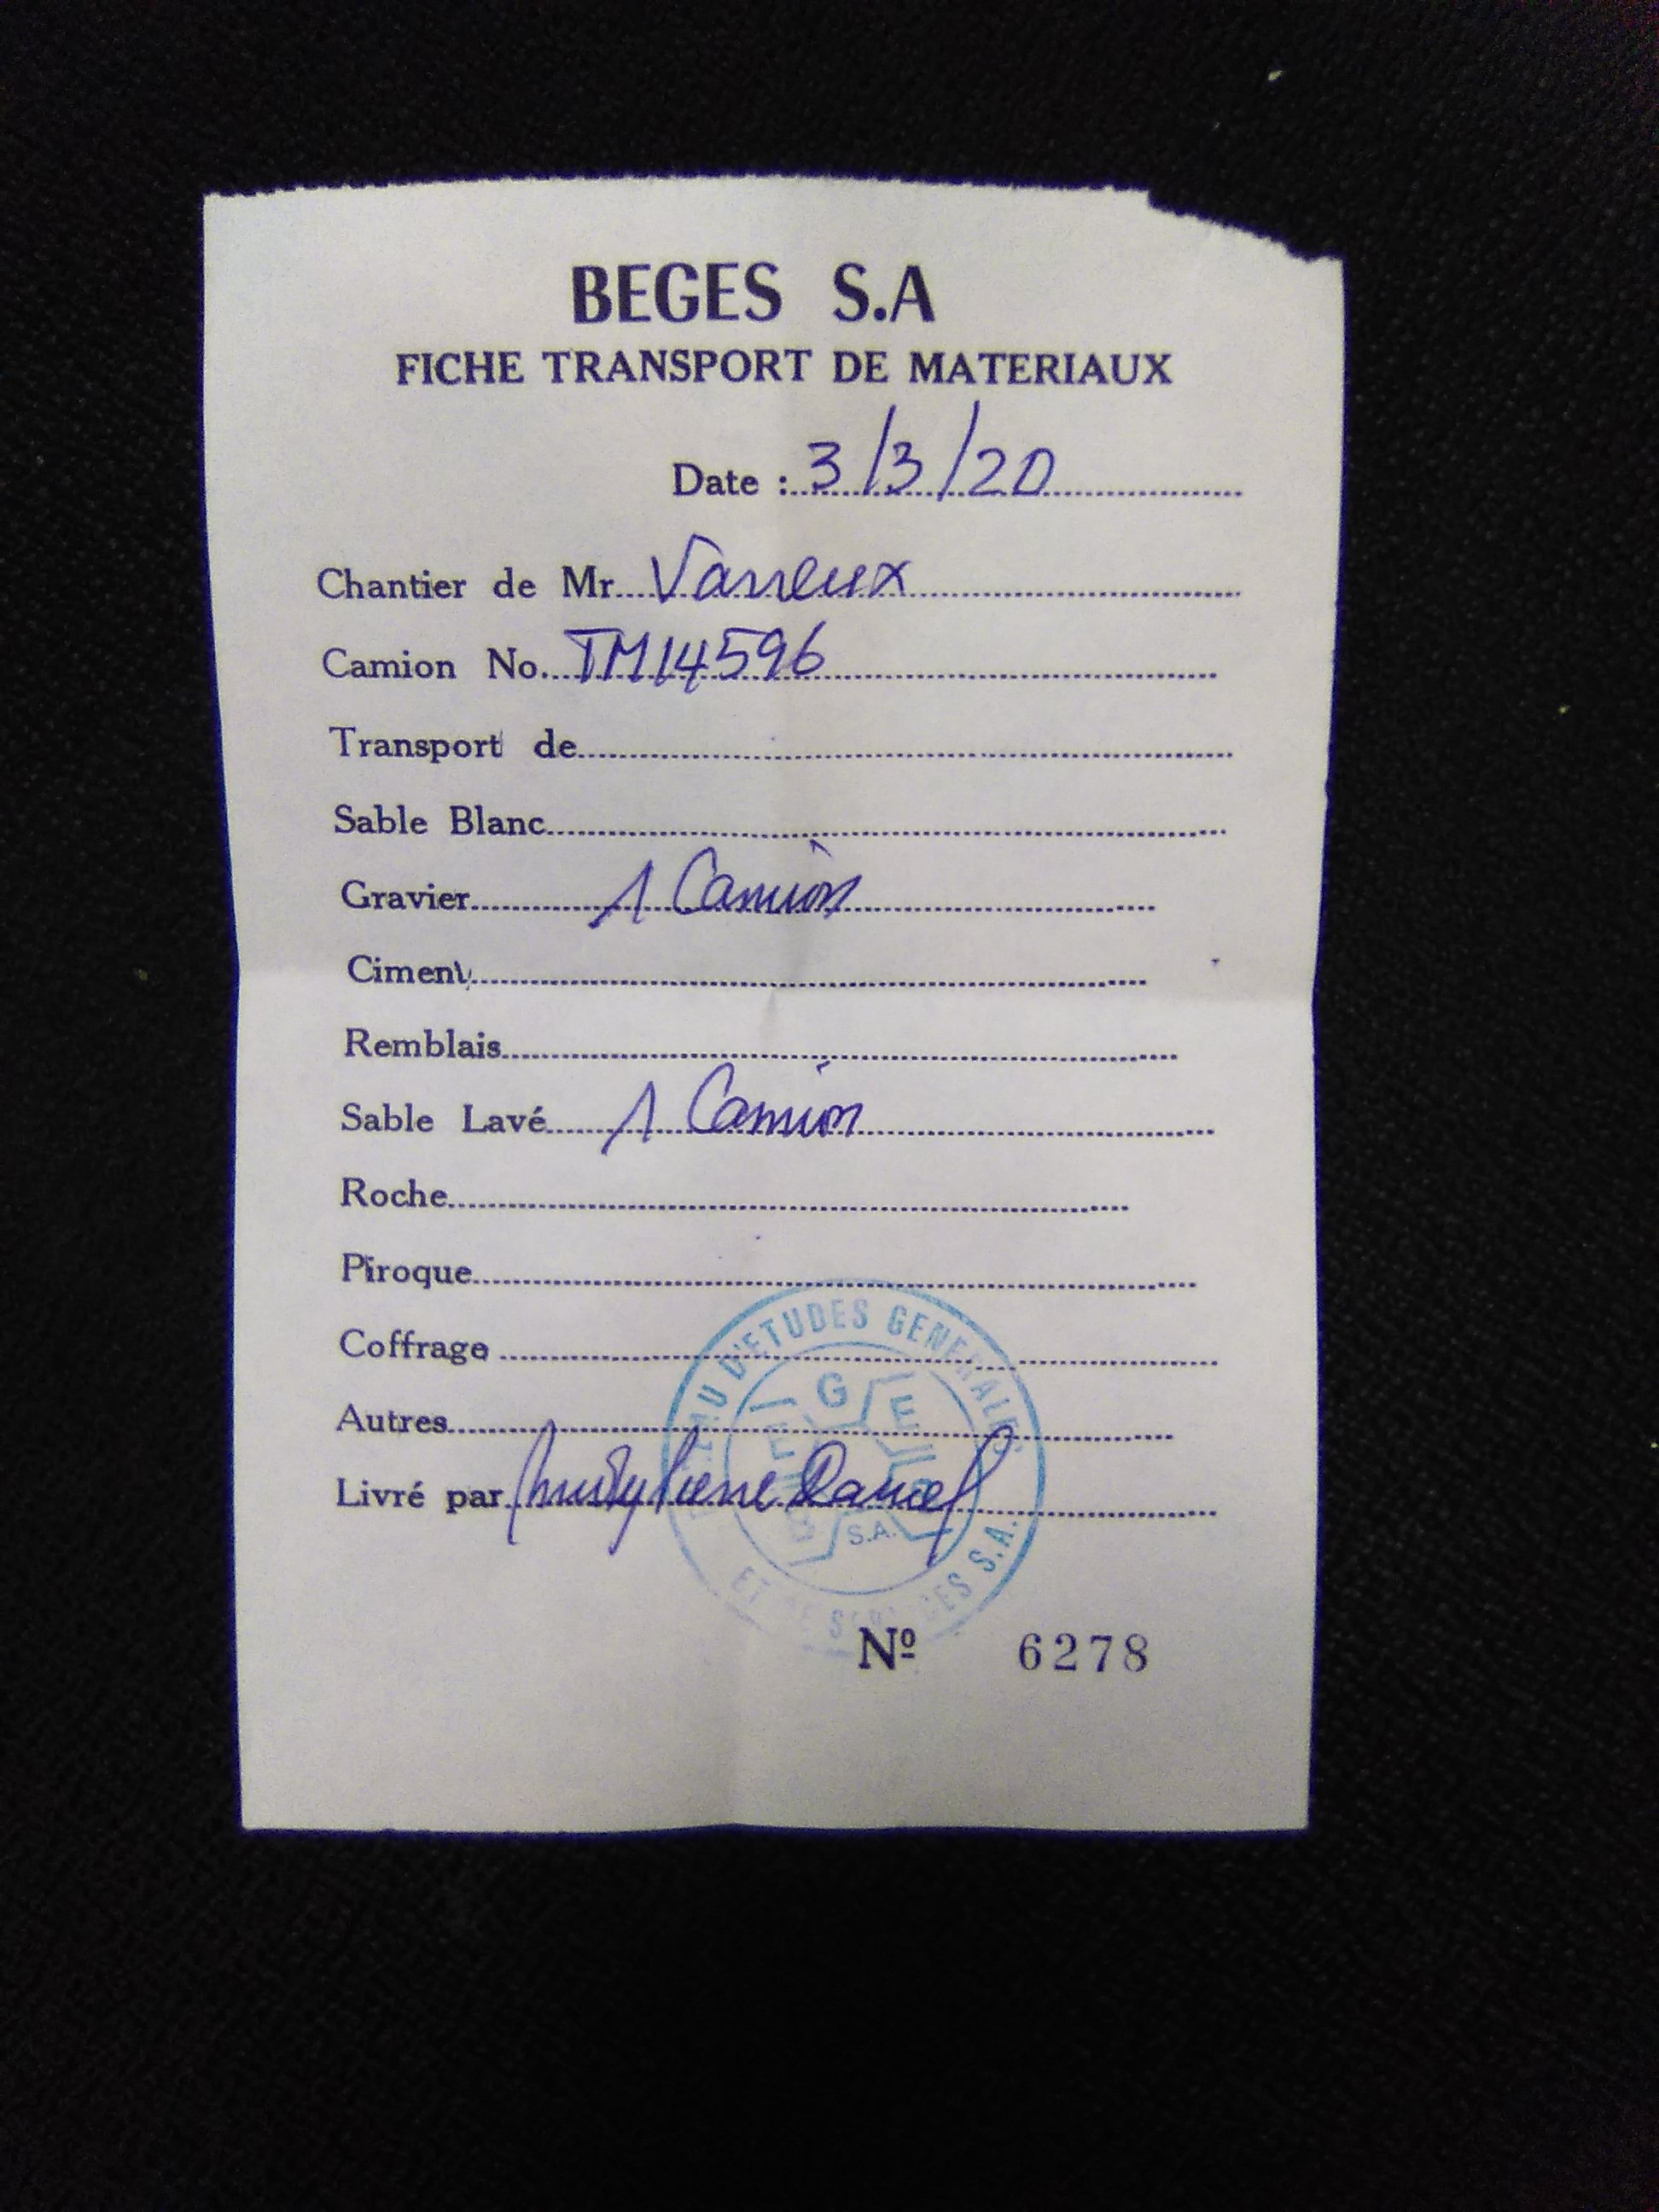 BEGES S.A
FICHE TRANSPORT DE MATERIAUX
Date : 3/3/20
Chantier de Mr Varreux
Camion No. TM14596
Transport de
Sable Blanc
Gravier 1 Camion
Ciment
Remblais
Sable Lavé 1 Camion
Roche
Piroque
Coffrage
Autres
Livré par
D'ETUDES GENERALES
G E
S.A.
ET S.A.
Nº 6278